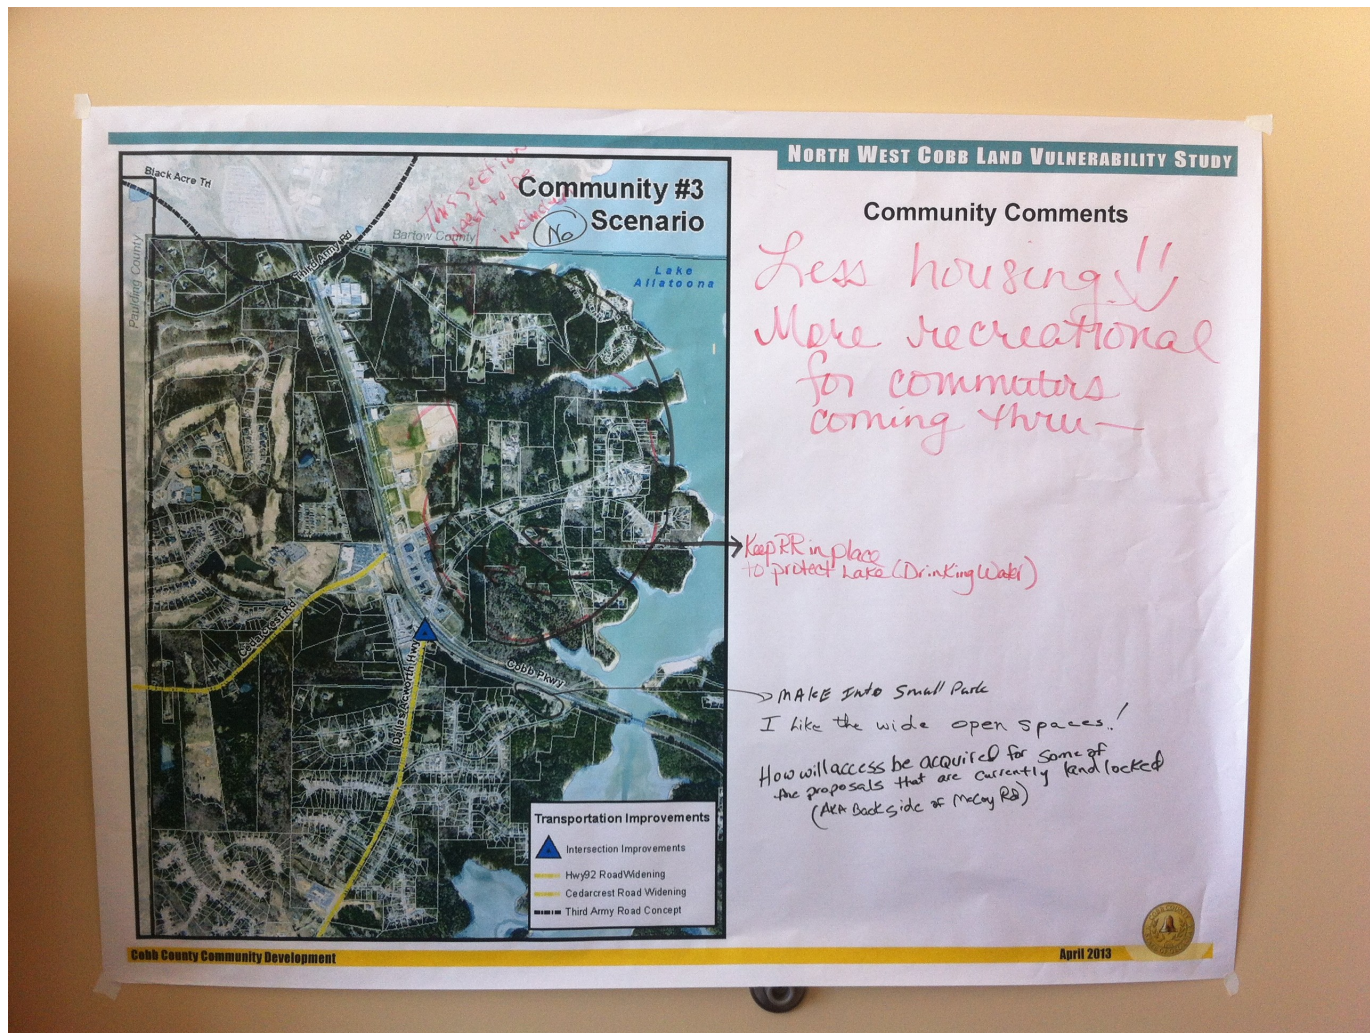 NORTH WEST COBB LAND VULNERABILITY STUDY
Community #3
Scenario
This section
need to be
included
No
Black Acre Trl
Third Army Rd
Bartow County
Paulding County
Lake
Allatoona
Cedarcrest Rd
Dallas Acworth Hwy
Cobb Pkwy
Transportation Improvements
Intersection Improvements
Hwy92 RoadWidening
Cedarcrest Road Widening
Third Army Road Concept
Community Comments
Less housing!!
More recreational
for commuters
coming thru—
Keep RR in place
to protect Lake (Drinking Water)
MAKE Into Small Park
I Like the wide open spaces!
How will access be acquired for some of
the proposals that are currently land locked
(AKA Back side of McCoy Rd)
Cobb County Community Development
April 2013